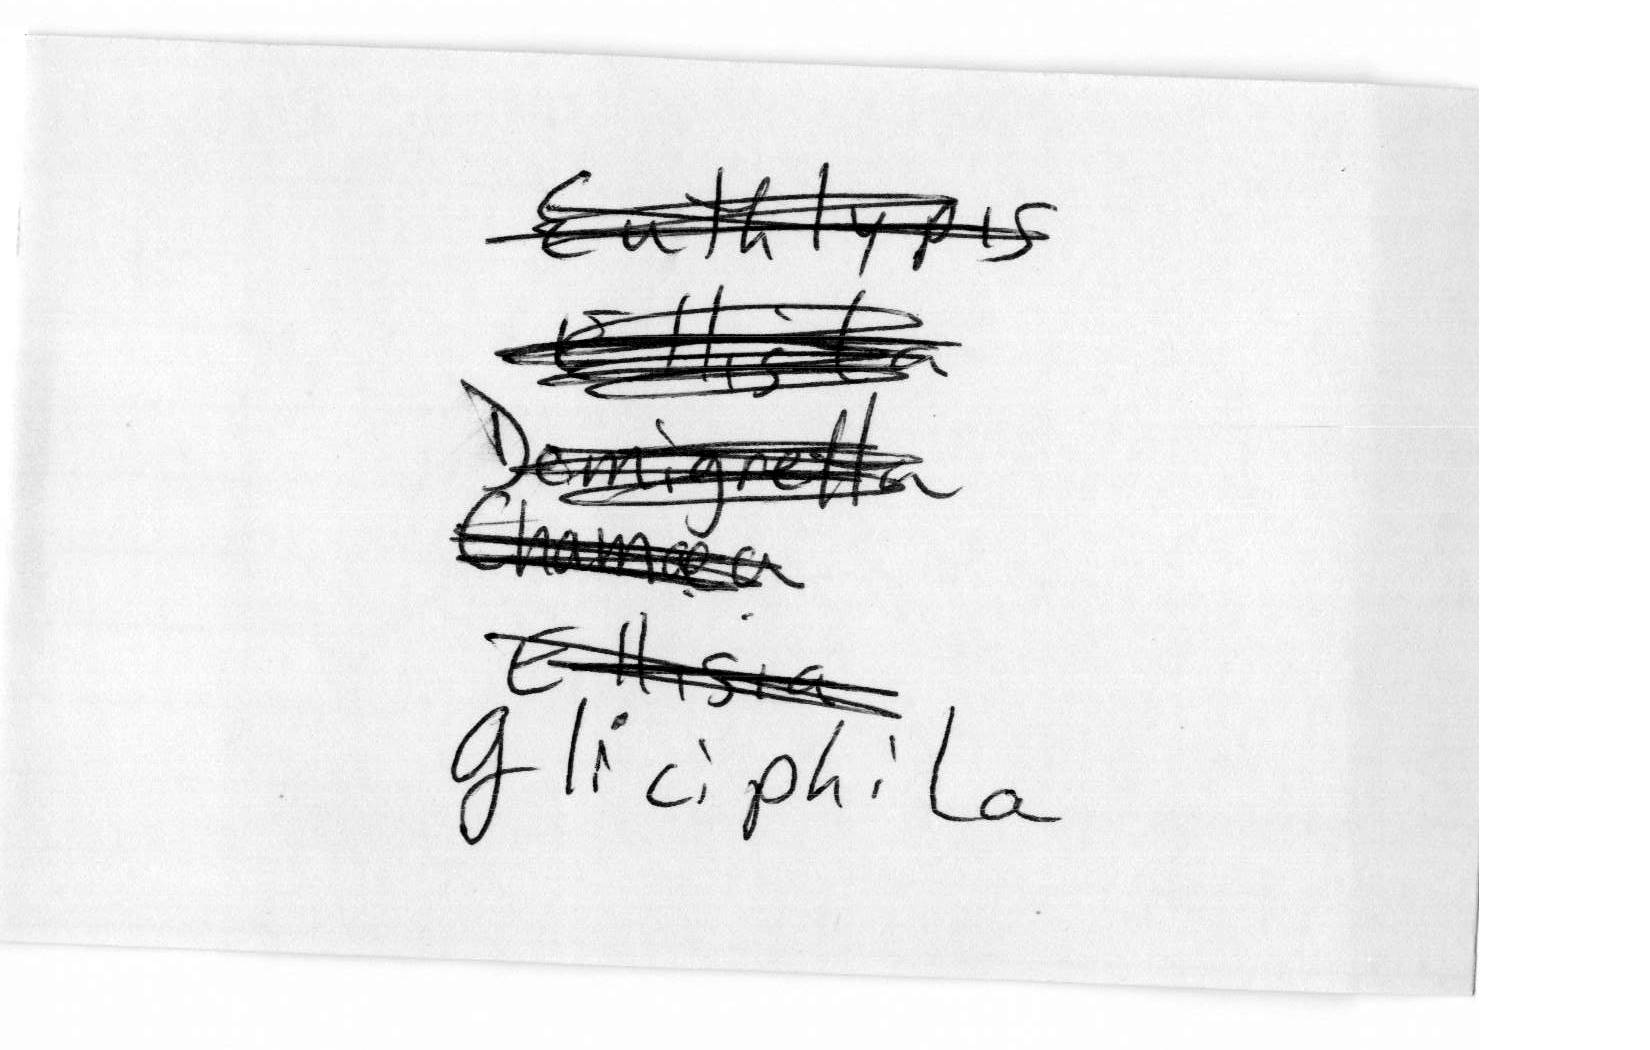 Euthlypis
Ellisia
Demigretta
Chamæa
Ellisia
gliciphila